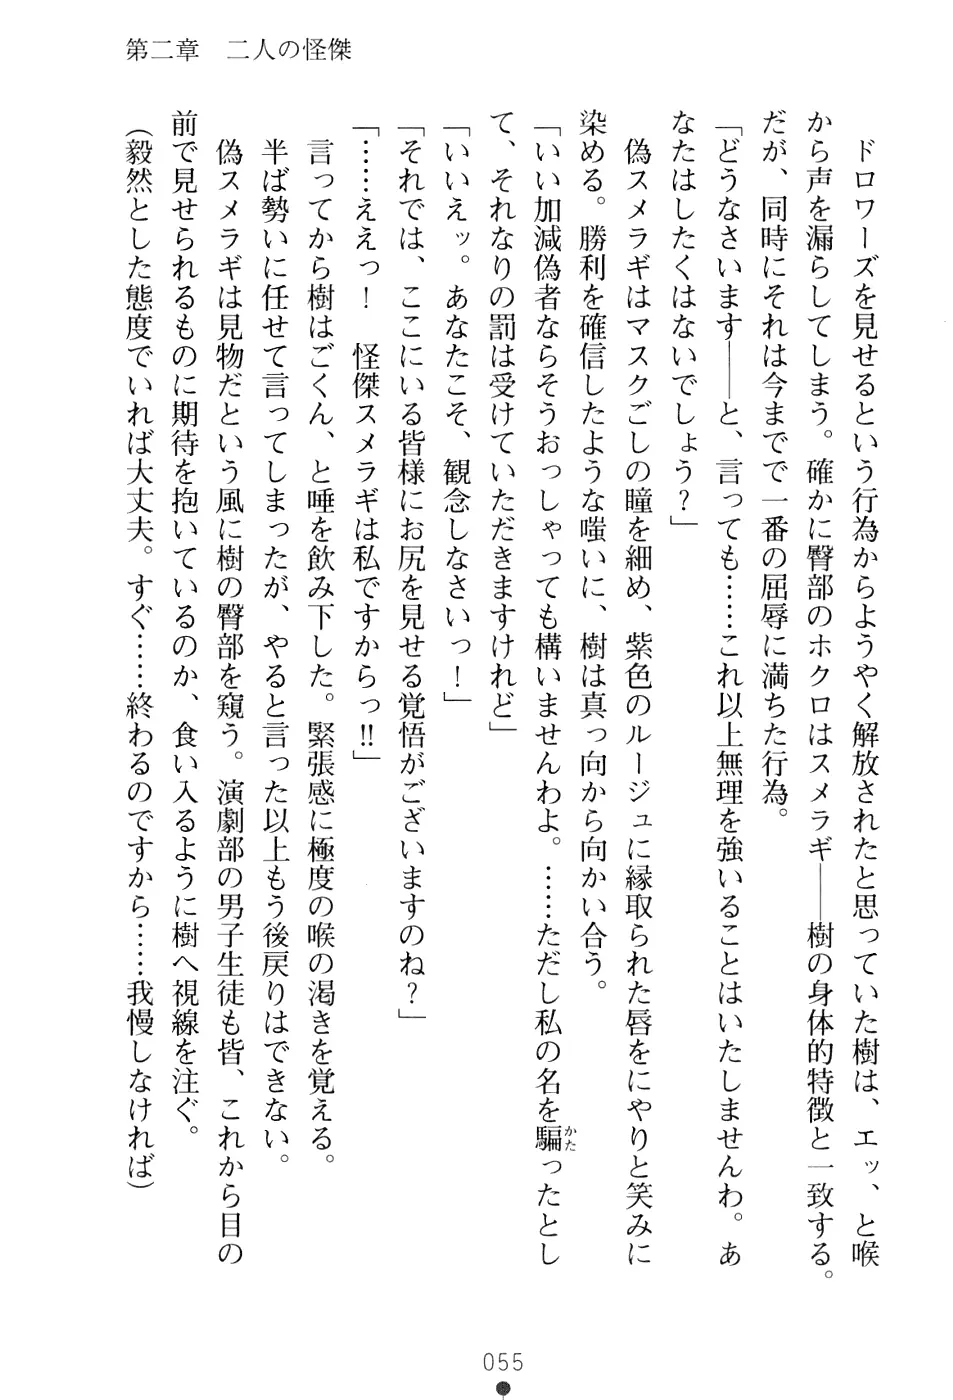 第二章　二人の怪傑
ドロワーズを見せるという行為からようやく解放されたと思っていた樹は、エッ、と喉
から声を漏らしてしまう。確かに臀部のホクロはスメラギ――樹の身体的特徴と一致する。
だが、同時にそれは今までで一番の屈辱に満ちた行為。
「どうなさいます――と、言っても……これ以上無理を強いることはいたしませんわ。あ
なたはしたくはないでしょう？」
偽スメラギはマスクごしの瞳を細め、紫色のルージュに縁取られた唇をにやりと笑みに
染める。勝利を確信したような嗤いに、樹は真っ向から向かい合う。
「いい加減偽者ならそうおっしゃっても構いませんわよ。……ただし私の名を騙ったとし
かた
て、それなりの罰は受けていただきますけれど」
「いいえッ。あなたこそ、観念しなさいっ！」
「それでは、ここにいる皆様にお尻を見せる覚悟がございますのね？」
「……ええっ！　怪傑スメラギは私ですからっ!!」
言ってから樹はごくん、と唾を飲み下した。緊張感に極度の喉の渇きを覚える。
半ば勢いに任せて言ってしまったが、やると言った以上もう後戻りはできない。
偽スメラギは見物だという風に樹の臀部を窺う。演劇部の男子生徒も皆、これから目の
前で見せられるものに期待を抱いているのか、食い入るように樹へ視線を注ぐ。
（毅然とした態度でいれば大丈夫。すぐ……終わるのですから……我慢しなければ）
055